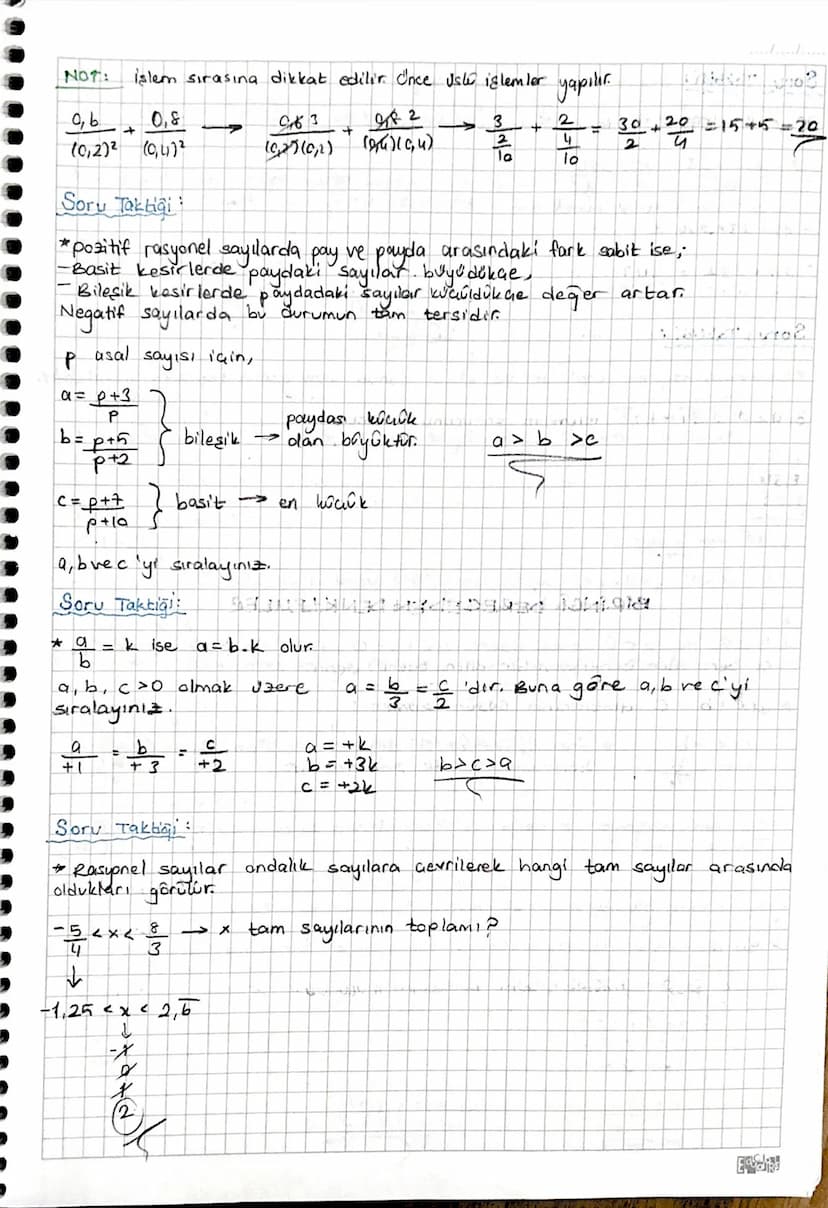 NOT: işlem sırasına dikkat edilir. Önce üslü işlemler yapılır.
0,6/(0,2)² + 0,8/(0,4)² → 0,6 3/(0,2)(0,2) + 0,8 2/(0,4)(0,4) → 3/(2/10) + 2/(4/10) = 30/2 + 20/4 = 15+5 = 20
Soru Taktiği:
*pozitif rasyonel sayılarda pay ve payda arasındaki fark sabit ise;
-Basit kesirlerde paydaki sayılar büyüdükçe,
- Bileşik kesirlerde paydadaki sayılar küçüldükçe değer artar.
Negatif sayılarda bu durumun tam tersidir.
p asal sayısı için,
a = p+3/p
b = p+5/p+2 } bileşik → paydası küçük olan büyüktür. a > b > c
c = p+7/p+10 } basit → en küçük
a, b ve c'yi sıralayınız.
Soru Taktiği:
* a/b = k ise a = b.k olur.
a, b, c >0 olmak üzere a = b/3 = c/2 'dir. Buna göre a, b ve c'yi
sıralayınız.
a/+1 = b/+3 = c/+2
a = +k
b = +3k b>c>a
c = +2k
Soru Taktiği:
* Rasyonel sayılar ondalık sayılara çevrilerek hangi tam sayılar arasında
oldukları görülür.
-5/4 < x < 8/3 → x tam sayılarının toplamı?
↓
-1,25 < x < 2,6̅
↓
-1
0
1
2